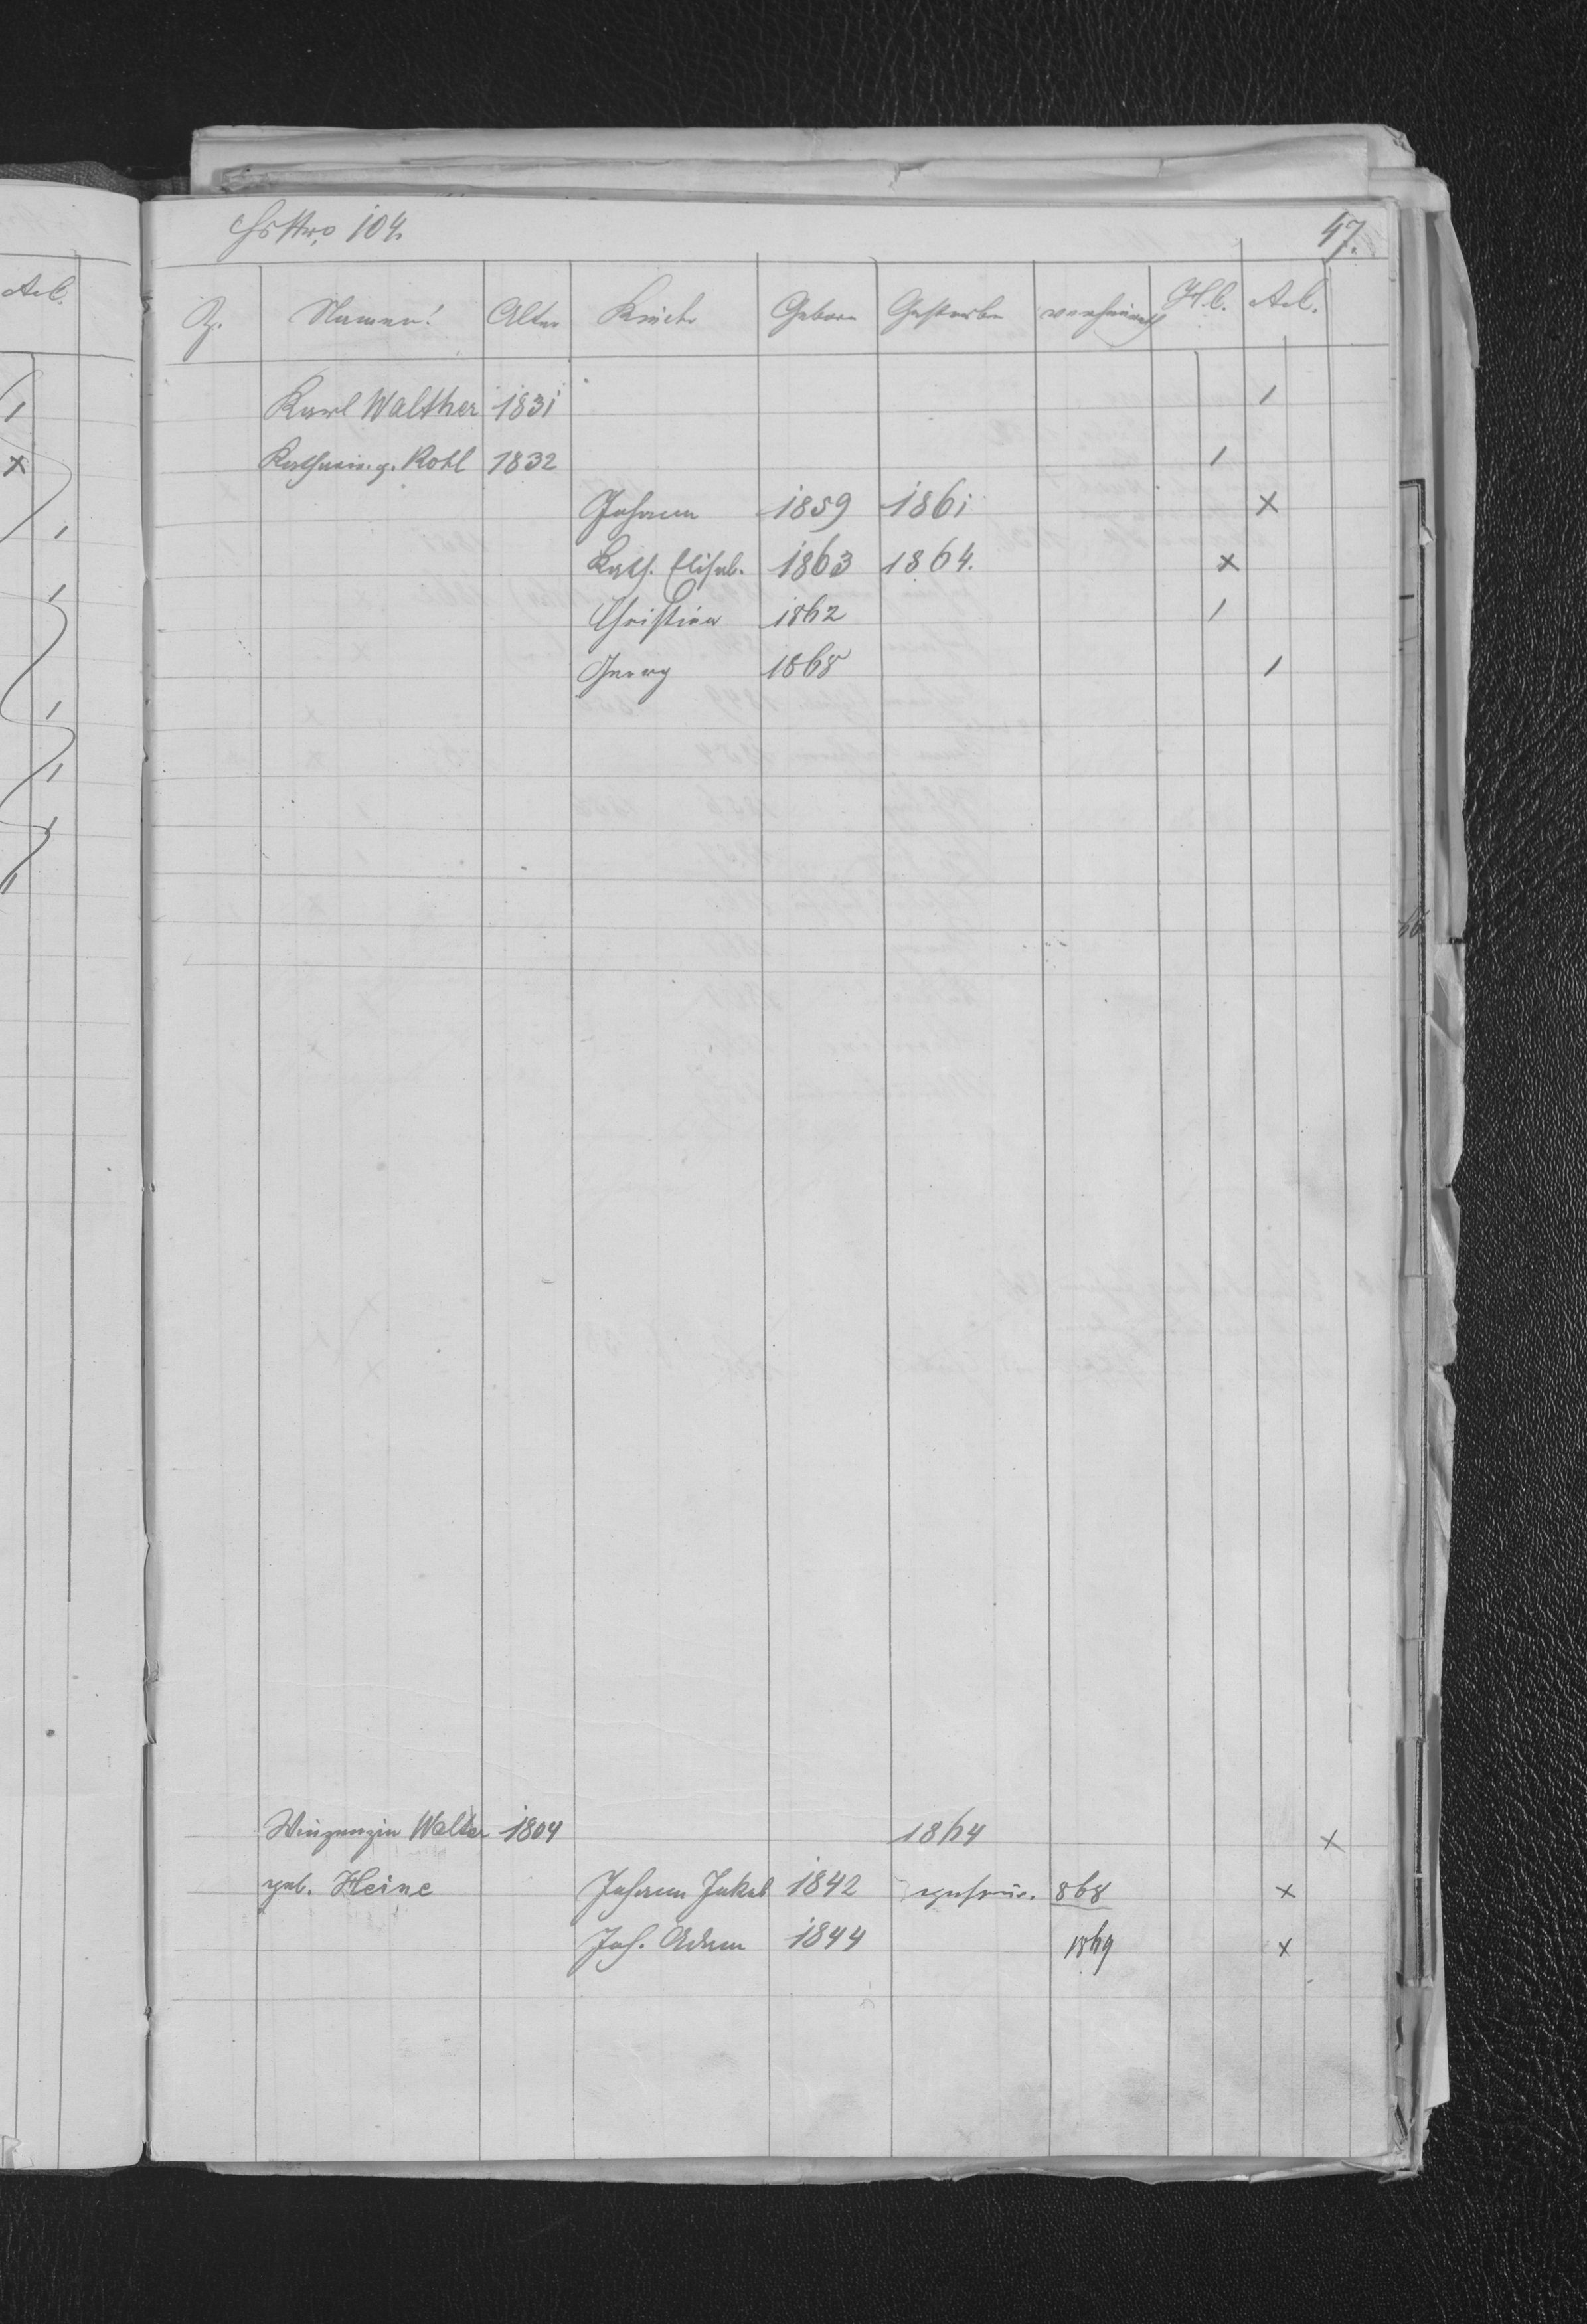 Hs Nro 104. 47.
Namen! Alter Kinder Geboren Gestorben verheirath H.C. A.C.
Karl Walther 1831 /
Katharin. g. Kohl 1832 /
Johann 1859 1861 x
Kath. Elisab. 1863 1864. x
Christina 1862 /
Georg 1868 /
A.C.
Walter 1804 1864 x
geb. Heine Johann Jakob 1842 geheir. 868 x
Joh. Adam 1844 1869 x